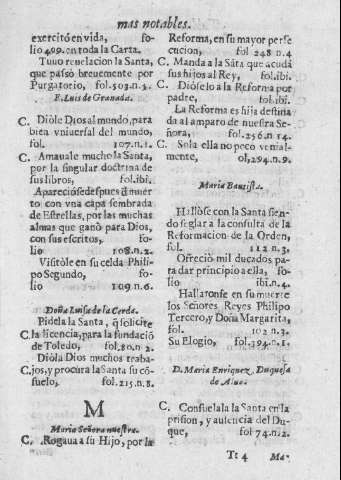 mas notables.
exercitó en vida, fo-
lio 409. en toda la Carta.
Tuuo reuelacion la Santa,
que passó breuemente por
Purgatorio, fol.503.n.3.
F. Luis de Granada.
C. Dióle Dios al mundo, para
bien vniuersal del mundo,
fol. 107.n.1.
C. Amauale mucho la Santa,
por la singular doctrina de
sus libros, fol.ibi.
Apareciose despues d muer
to con vna capa sembrada
de Estrellas, por las muchas
almas que ganò para Dios,
con sus escritos, fo-
lio 108.n.2.
Visitóle en su celda Phili-
po Segundo, fo-
lio 109.n.6.
Doña Luisa de la Cerda.
Pidela la Santa, q̃ solicite
C. la licencia, para la fundació
de Toledo, fol.80.n 2.
Dióla Dios muchos traba-
C. jos, y procura la Santa su có-
suelo, fol.215.n.8.
M
Maria Señora nuestra.
C. Rogaua a su Hijo, por la
Reforma, en su mayor perse
cucion, fol 248 n.4
C. Manda a la Sáta que acuda
sus hijos al Rey, fol.ibi.
C. Dióselo a la Reforma por
padre, fol.ibi.
La Reforma es hija destina
da al amparo de nuestra Se-
ñora, fol.256.n 14.
C. Sola ella no peco venial-
mente, ol,294.n.9.
Maria Bautista.
Hallóse con la Santa sien-
do seglar a la consulta de la
Reformacion de la Orden,
fol. 112 n.3.
Ofreció mil ducados pa-
ra dar principio a ella, fo-
lio ibi.n.4.
Hallaronse en su muerte
los Señores Reyes Philipo
Tercero, y Doña Margarita,
fol. 102 n.3.
Su Elogio, fol.394.n.1.
D. Maria Enriquez, Duquesa
de Alua.
C. Consuelala la Santa en la
prision, y ausencia del Du-
que, fol 74.n.2.
Tt 4 Ma-